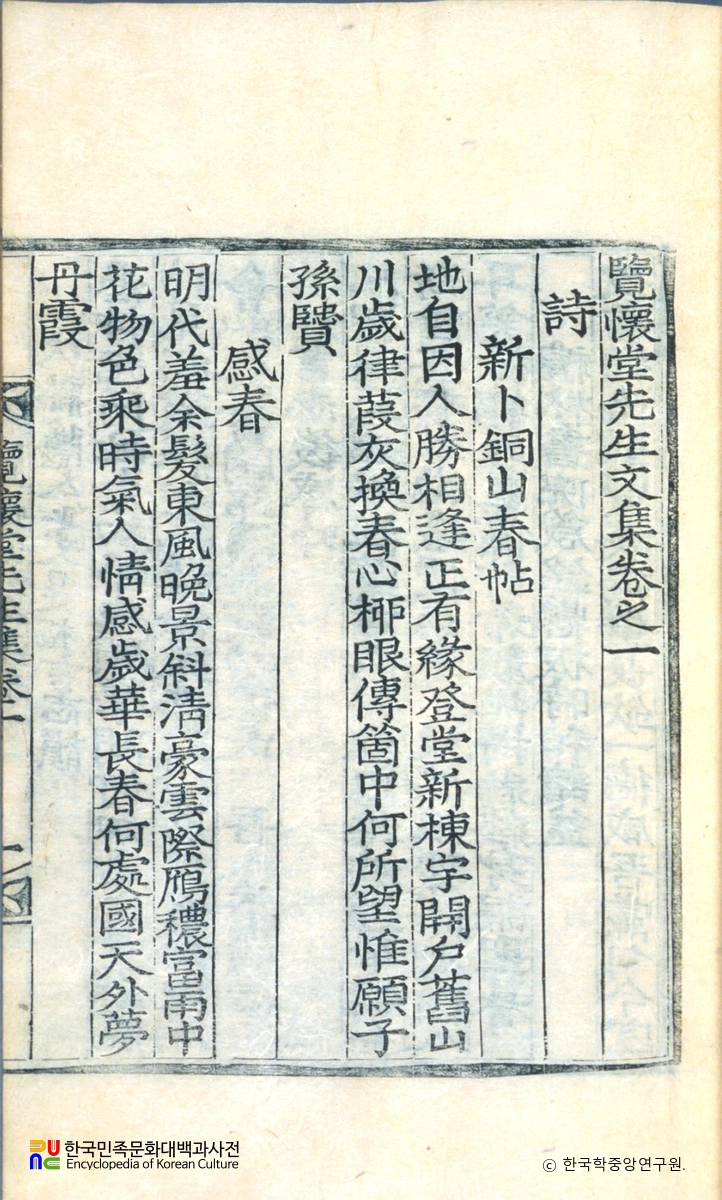 覽懷堂先生文集卷之一
詩
新卜銅山春帖
地自因人勝相逢正有緣登堂新棟宇開戶舊山
川歲律葭灰換春心柳眼傳箇中何所望惟願子
孫賢
感春
明代羞余髮東風晩景斜淸豪雲際鴈穠富雨中
花物色乘時氣人情感歲華長春何處國天外夢
丹霞
覽懷堂先生集卷一
一
한국민족문화대백과사전
Encyclopedia of Korean Culture
ⓒ 한국학중앙연구원.